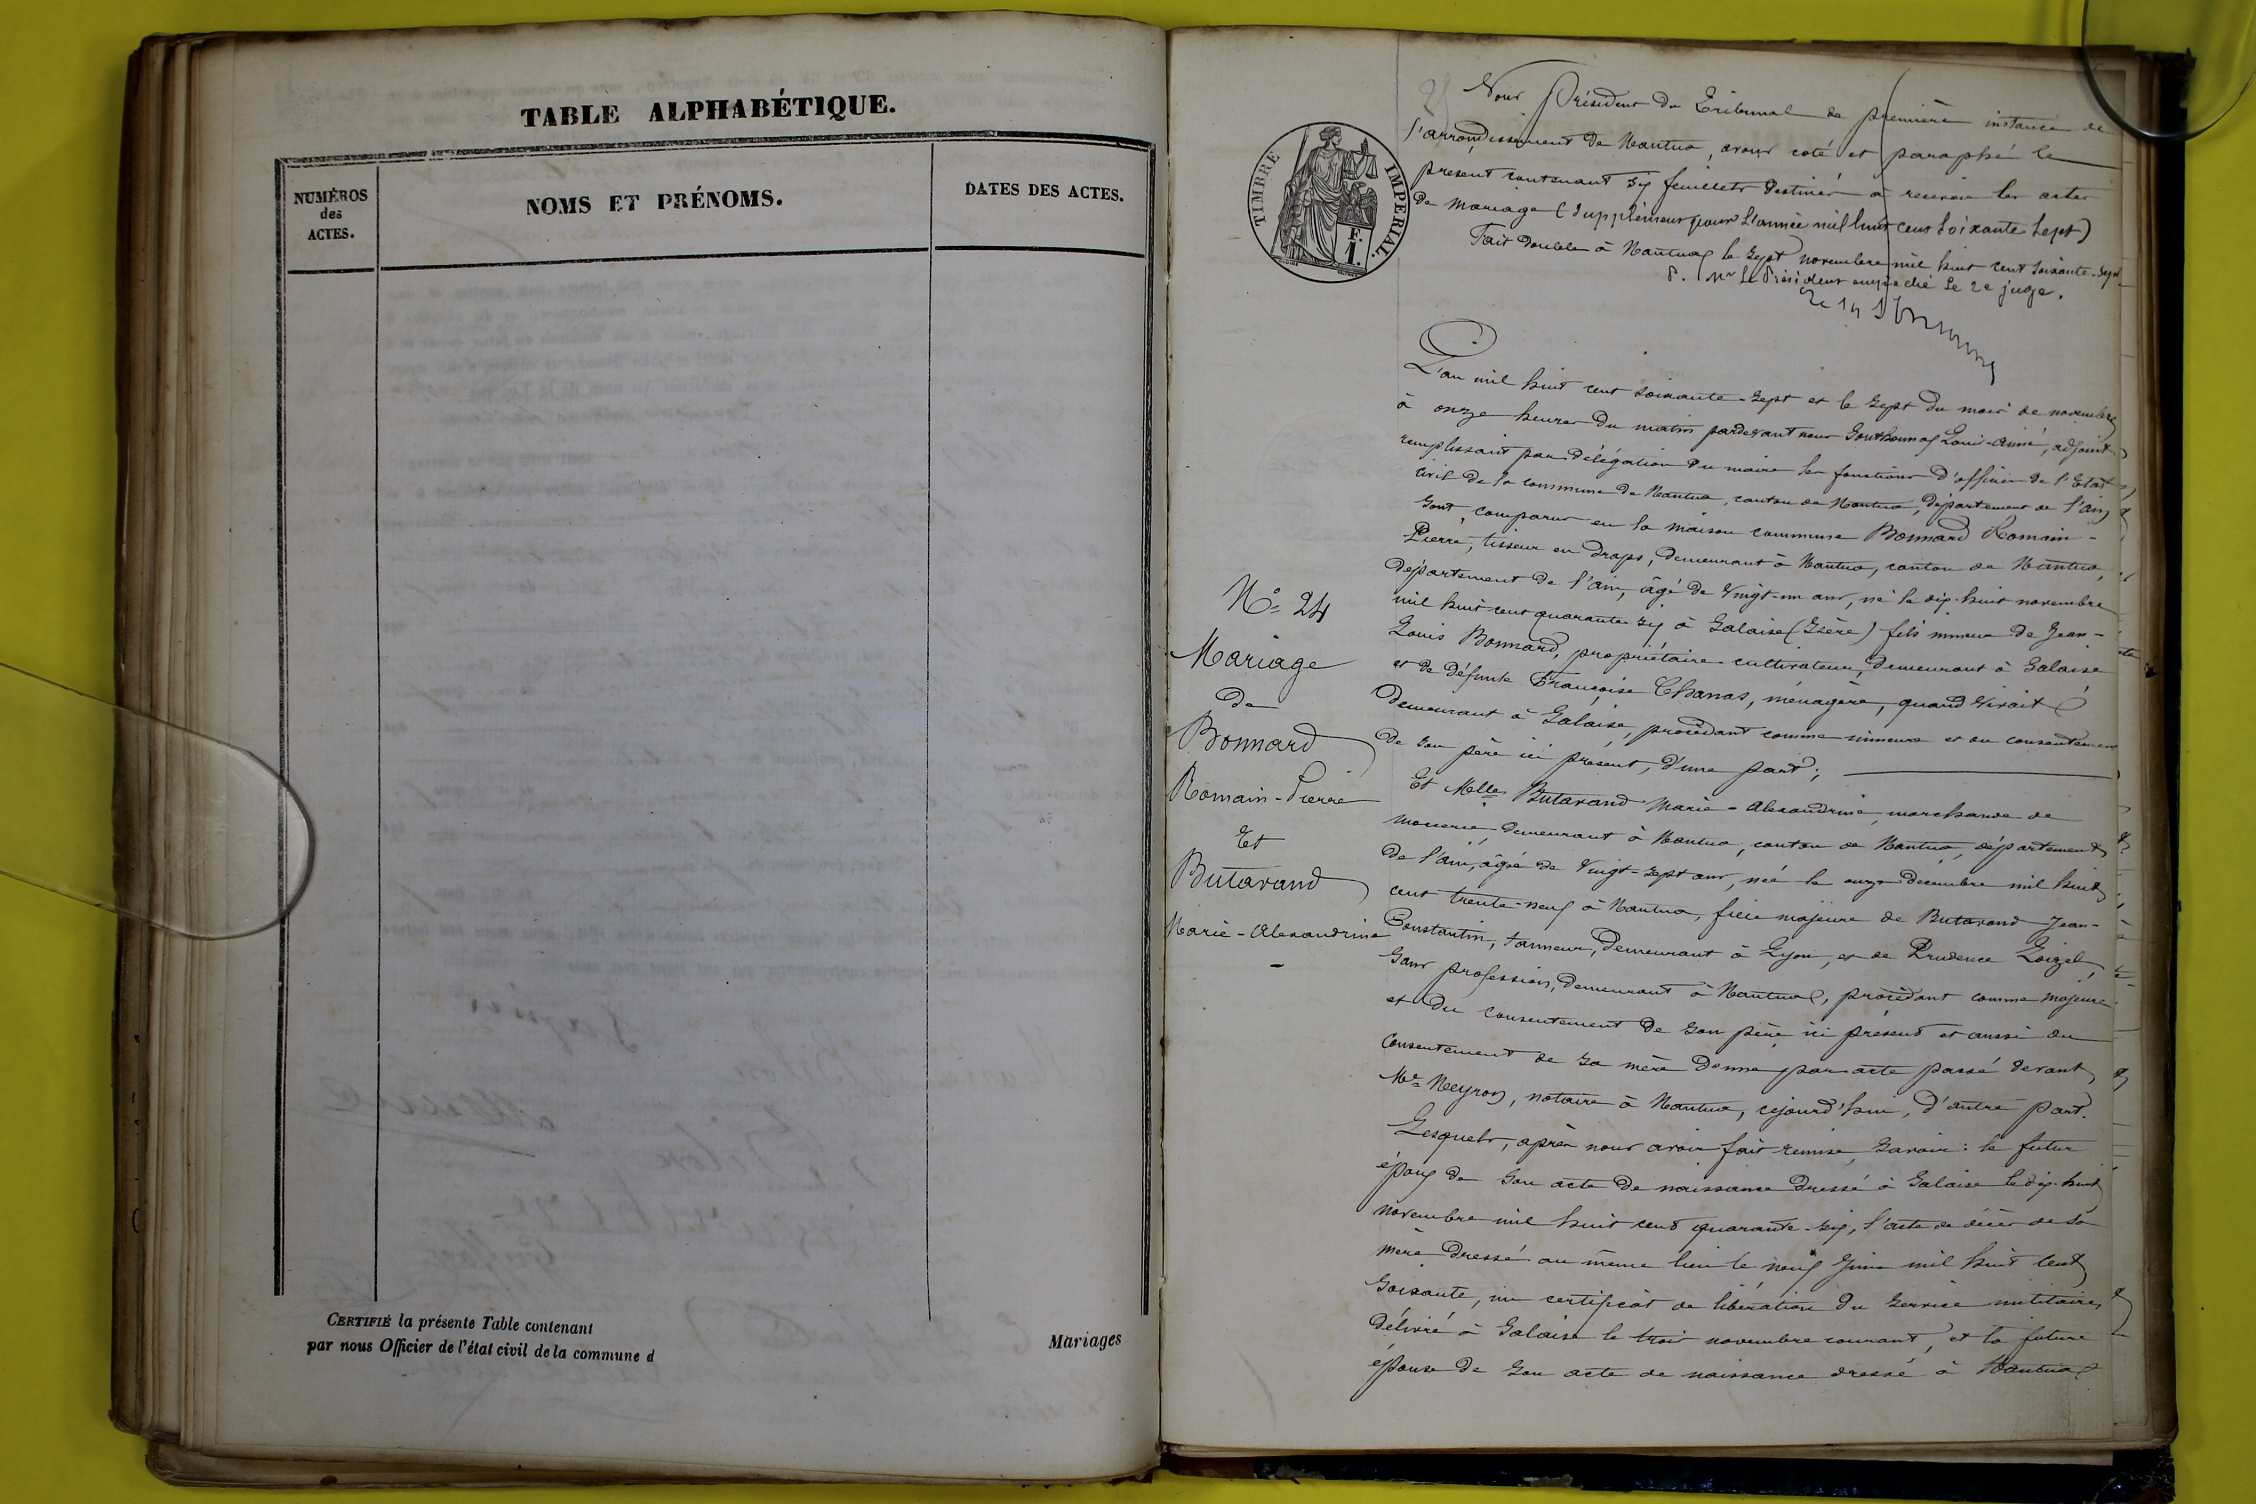 TABLE ALPHABÉTIQUE.
NUMÉROS
des
ACTES.
NOMS ET PRÉNOMS.
DATES DES ACTES.
CERTIFIÉ la présente Table contenant
Mariages
par nous Officier de l'état civil de la commune d
TIMBRE IMPERIAL.
F.
1.
Nous Président du Tribunal de première instance de
l'arrondissement de Nantua, avons coté et paraphé le
présent contenant six feuillets destinés à recevoir les actes
de mariage (supplément pour l'année mil huit cent soixante sept)
Fait double à Nantua le sept novembre mil huit cent soixante-sept
P. Mr le Président empêché le 2e juge.
L'an mil huit cent soixante-sept et le sept du mois de novembre
à onze heures du matin pardevant nous Gouthonnaz Louis-Aimé, adjoint
remplissant par délégation du maire les fonctions d'officier de l'Etat
civil de la commune de Nantua, canton de Nantua, département de l'ain
sont comparus en la maison commune Bonnard Romain-
Pierre, tisseur en draps, demeurant à Nantua, canton de Nantua,
département de l'ain, âgé de vingt-un ans, né le dix-huit novembre
mil huit cent quarante six à Salaise (Isère) fils mineur de Jean-
Louis Bonnard, propriétaire-cultivateur, demeurant à Salaise
et de défunte Françoise Chanas, ménagère, quand vivait
demeurant à Salaise, procédant comme mineur et du consentement
de son père ici présent, d'une part;
Et Melle Butavand Marie-Alexandrine, marchande de
mercerie, demeurant à Nantua, canton de Nantua, département
de l'ain, âgée de vingt-sept ans, née le onze décembre mil huit
cent trente-neuf à Nantua, fille majeure de Butavand Jean-
Constantin, tanneur, demeurant à Lyon, et de Prudence Loizel,
sans profession, demeurant à Nantua, procédant comme majeure
et du consentement de son père ici présent et aussi du
consentement de sa mère donné par acte passé devant
Me Neyron, notaire à Nantua, cejourd'hui, d'autre part.
Lesquels, après nous avoir fait remise, savoir: le futur
époux de son acte de naissance dressé à Salaise le dix-huit
novembre mil huit cent quarante-six, l'acte de décès de sa
mère dressé au même lieu le neuf juin mil huit cent
soixante, un certificat de libération du service militaire,
délivré à Salaise le trois novembre courant, et la future
épouse de son acte de naissance dressé à Nantua
No 24
Mariage
de
Bonnard
Romain-Pierre
Et
Butavand
Marie-Alexandrine